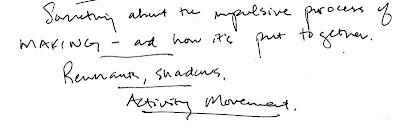 Something about the impulsive process of
MAKING – and how it's put together.
Remnants, shadows.
Activity Movement.